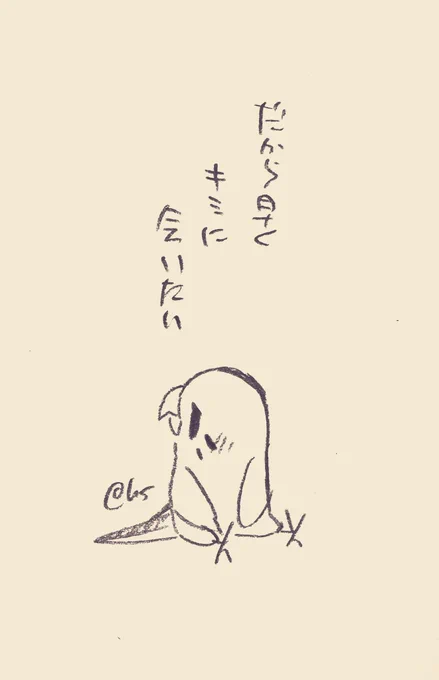 だから早く
キミに
会いたい
@hs